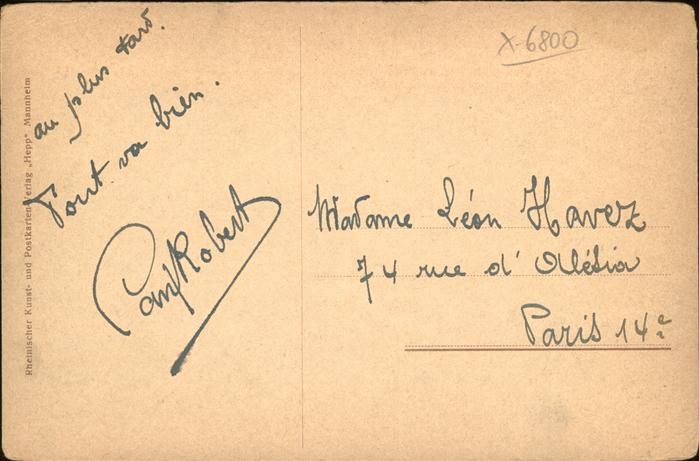 au plus tard.
Tout va bien.
Paul Robert
X-6800
Madame Léon Havez
74 rue d'Alésia
Paris 14e
Rheinischer Kunst- und Postkarten-Verlag „Hepp" Mannheim